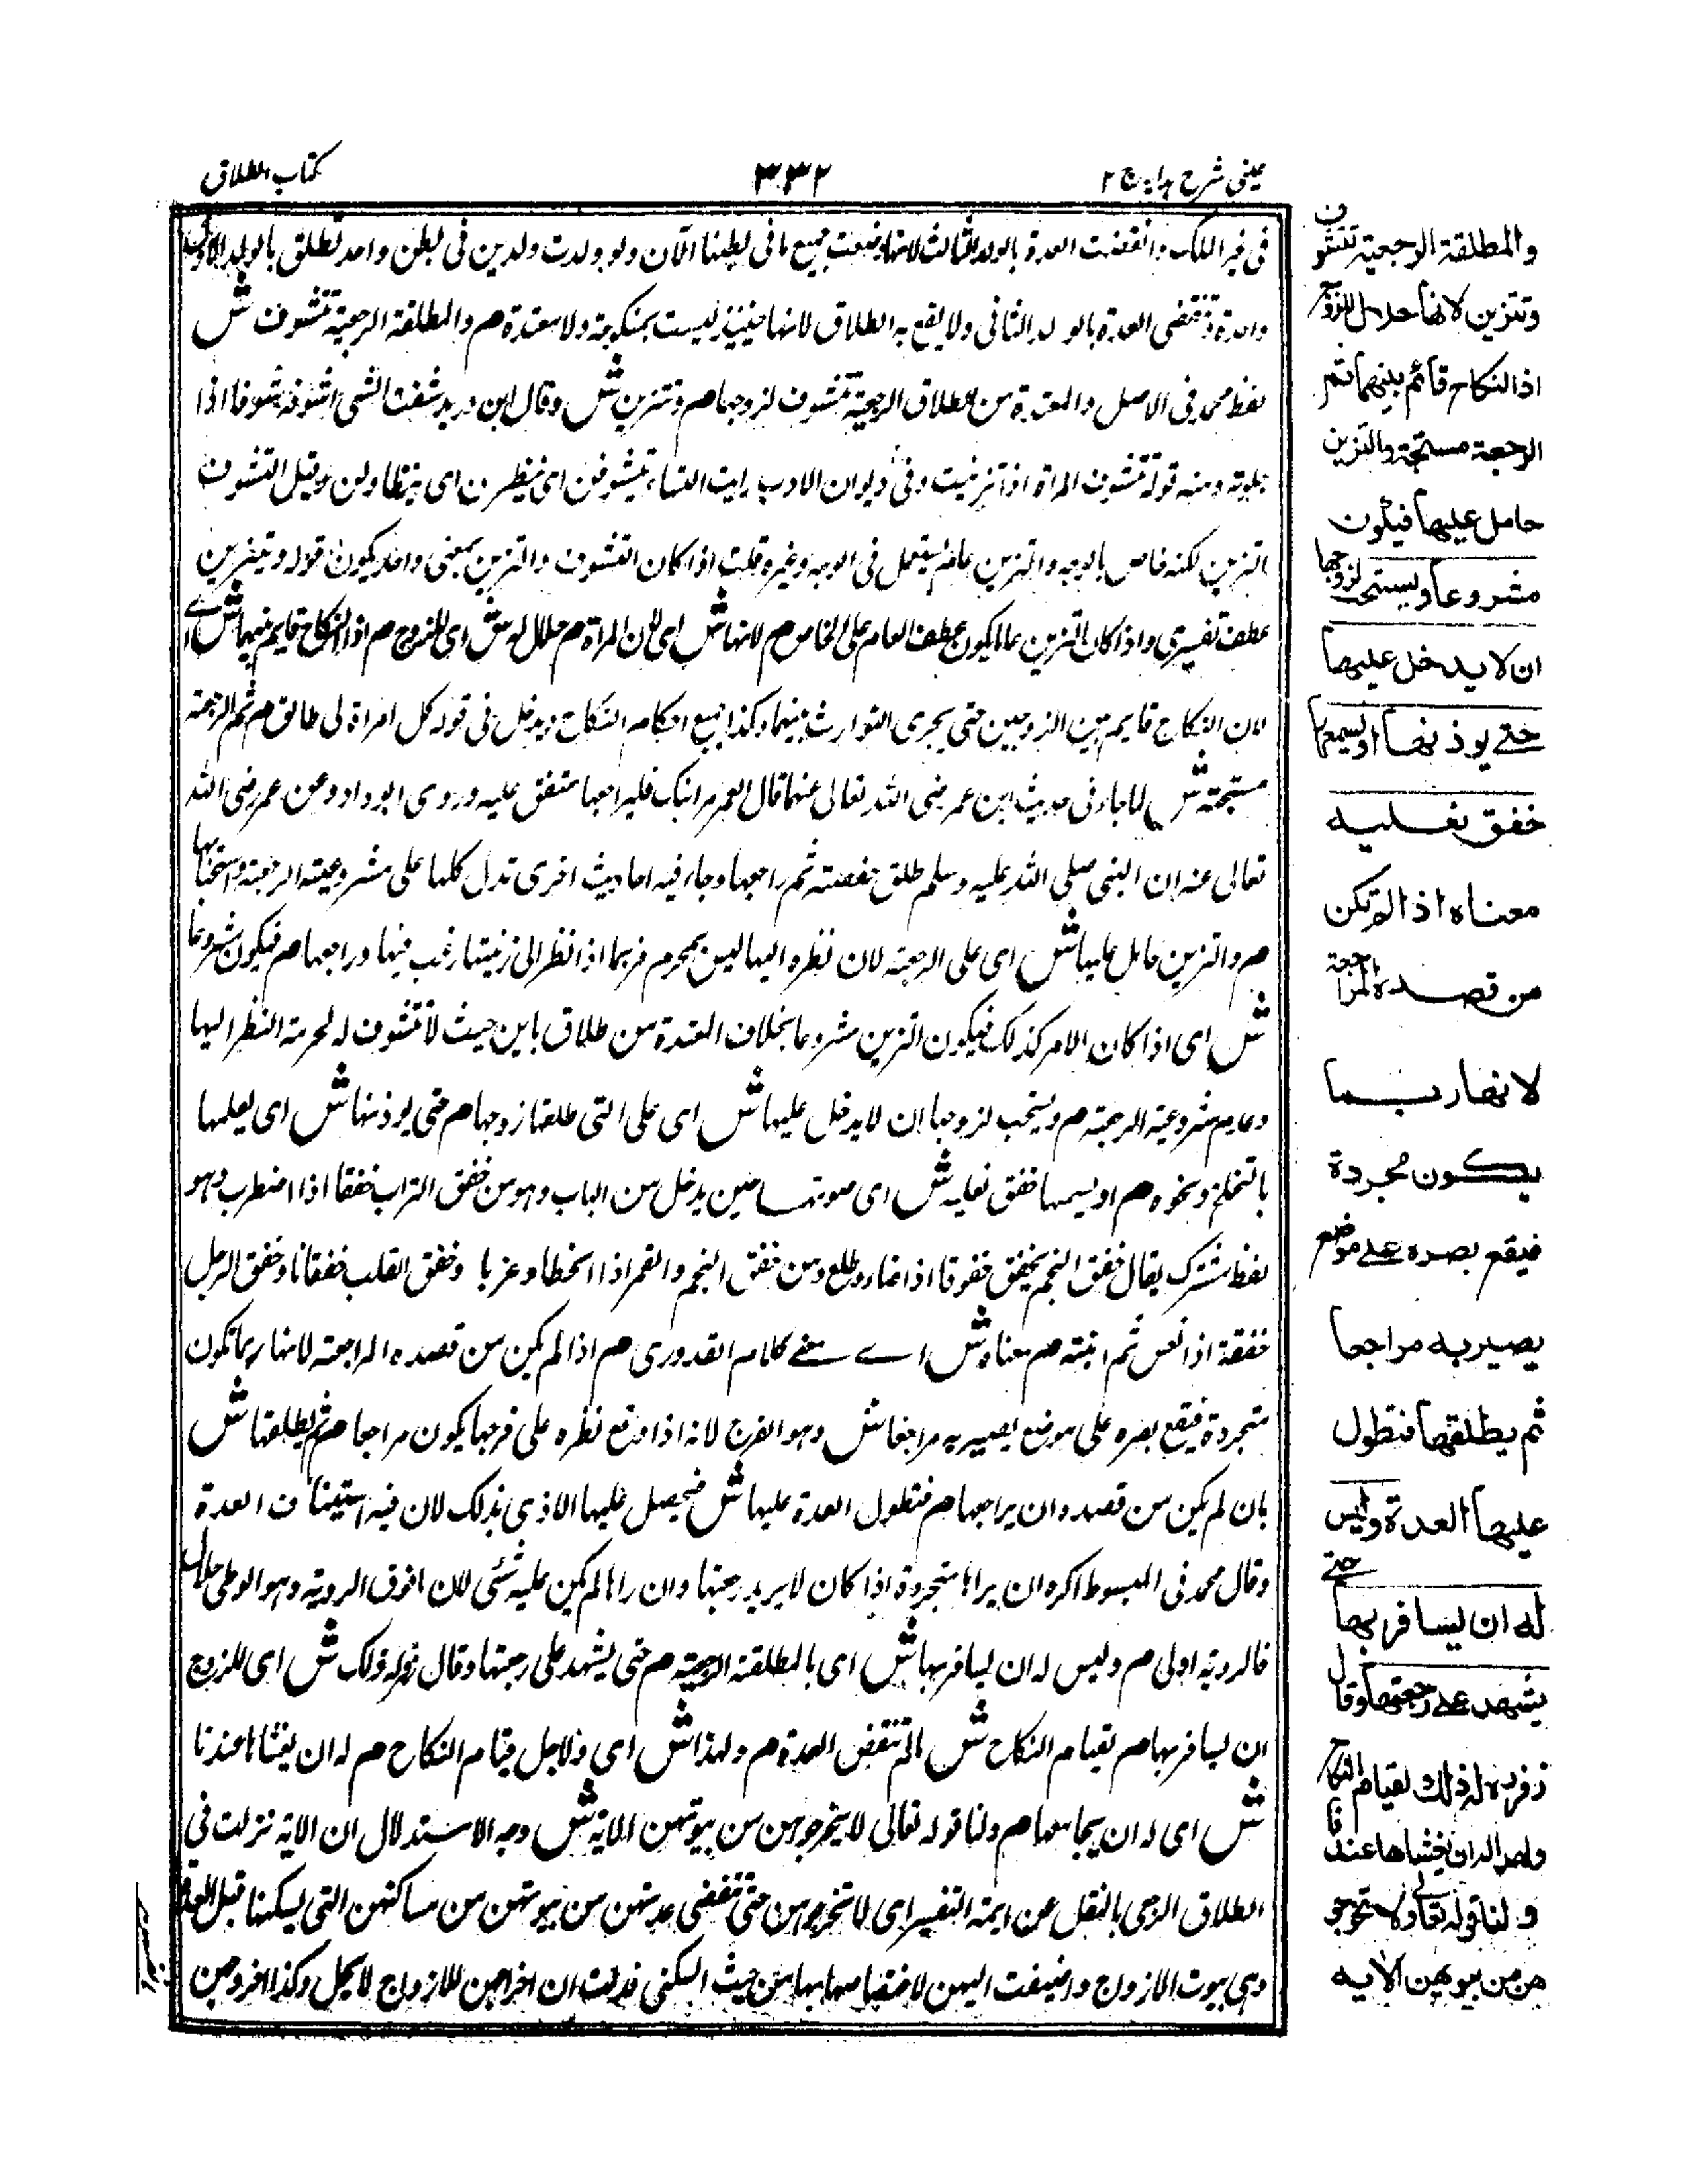 عینی شرح ہدایہ ج ٢
٣٣٢
کتاب الطلاق
فی غیر الملک وانقضت العدة بالولد الثالث لانها وضعت جمیع ما فی بطنها الآن ولو ولدت ولدین فی بطن واحد تطلق بالولد الاول
واحدة وتنقضی العدة بالولد الثانی ولا یقع به الطلاق لانها حینئذ لیست بمنکوحة ولا معتدة م والمطلقة الرجعیة تتشوف ش
لفظ محمد فی الاصل والمعتدة من الطلاق الرجعیة تتشوف لزوجها م وتتزین ش وقال ابن درید شفت الشی اشوفه شوفا اذا
جلوته ومنه قوله تتشوف المراة اذا تزینت وفی دیوان الادب رایت النساء یتشوفن ای ینظرن ای یتطاولن وقیل التشوف
التزین لکنه خاص بالوجه والتزین عام یستعمل فی الوجه وغیره قلت اذا کان التشوف والتزین بمعنی واحد یکون قوله وتتزین
عطف تفسیری واذا کان التزین عاما یکون عطف العام علی الخاص م لانها ش ای لان المراة م حلال له ش ای للزوج م اذ النکاح قایم بینهما ش اے
لان النکاح قایم بین الزوجین حتی یجری التوارث بینهما وکذا جمیع احکام النکاح ویدخل فی قوله کل امراة لی طالق م ثم الرجعة
مستحبة ش لما جاء فی حدیث ابن عمر رضی الله تعالی عنهما قال لعمر مر ابنک فلیراجعها متفق علیه وروی ابو داود عن عمر رضی الله
تعالی عنه ان النبی صلی الله علیه وسلم طلق حفصة ثم راجعها وجاء فیه احادیث اخری تدل کلها علی مشروعیة الرجعة واستحبابها
م والتزین حامل علیها ش ای علی الرجعة لان نظره الیها لیس بمحرم فربما اذا نظر الی زینتها رغب فیها وراجعها م فیکون مشروعا
ش ای اذا کان الامر کذلک فیکون التزین مشروعا بخلاف المعتدة من طلاق باین حیث لا تتشوف له لحرمة النظر الیها
وعدم مشروعیة الرجعة م ویستحب لزوجها ان لا یدخل علیها ش ای علی التی طلقها زوجها م حتی یوذنها ش ای یعلمها
بالتنحنح ونحوه م او یسمعها خفق نعلیه ش ای صوتهما حین یدخل من الباب وهو من خفق التراب خفقا اذا اضطرب وهو
لفظ مشترک یقال خفق النجم یخفق خفوقا اذا اضاء وطلع ومن خفق النجم والقمر اذا انحطا وغربا وخفق القلب خفقانا وخفق الرجل
خفقة اذا نعس ثم انتبه م معناه ش اے معنے کلام القدوری م اذا لم یکن من قصده المراجعة لانها ربما تکون
متجردة فیقع بصره علی موضع یصیر به مراجعا ش وهو الفرج لانه اذا وقع نظره علی فرجها یکون مراجعا م ثم یطلقها ش
بان لم یکن من قصده ان یراجعها م فتطول العدة علیها ش فیحصل علیها الاذی بذلک لان فیه استیناف العدة
وقال محمد فی المبسوط اکره ان یراها متجردة اذا کان لا یرید رجعتها وان راها لم یکن علیه شئی لان ما فوق الرویة وهو الوطی حلال
فالرویة اولی م ولیس له ان یسافر بها ش ای بالمطلقة الرجعیة م حتی یشهد علی رجعتها وقال زفر له ذلک ش ای للزوج
ان یسافر بها م لقیام النکاح ش ما لم تنقض العدة م ولهذا ش ای ولاجل قیام النکاح م له ان یغشاها عندنا
ش ای له ان یجامعها م ولنا قوله تعالی لا تخرجوهن من بیوتهن الآیة ش وجه الاستدلال ان الآیة نزلت فی
الطلاق الرجعی بالنقل عن ایمة التفسیر ای لا تخرجوهن حتی تنقضی عدتهن من بیوتهن من مساکنهن التی یسکنها قبل العدة
وهی بیوت الازواج واضیفت الیهن لاختصاصها بها من حیث السکنی فدلت ان اخراجهن للازواج لا یحل وکذا خروجهن
والمطلقة الرجعیة تتشوف
وتتزین لانها حلال للزوج
اذ النکاح قائم بینهما ثم
الرجعة مستحبة والتزین
حامل علیها فیکون
مشروعا ویستحب لزوجها
ان لا یدخل علیها
حتے یوذنها او یسمعها
خفق نعلیه
معناه اذا لم یکن
من قصده المراجعة
لانها ربما
یکون مجردة
فیقع بصره علے موضع
یصیر به مراجعا
ثم یطلقها فتطول
علیها العدة ولیس
له ان یسافر بها حتے
یشهد علے رجعتها وقال
زفر ره له ذلك لقیام النکاح
ولهذا له ان یغشاها عندنا
ولنا قوله تعالی ولا تخرجو
هن من بیوتهن الآیه